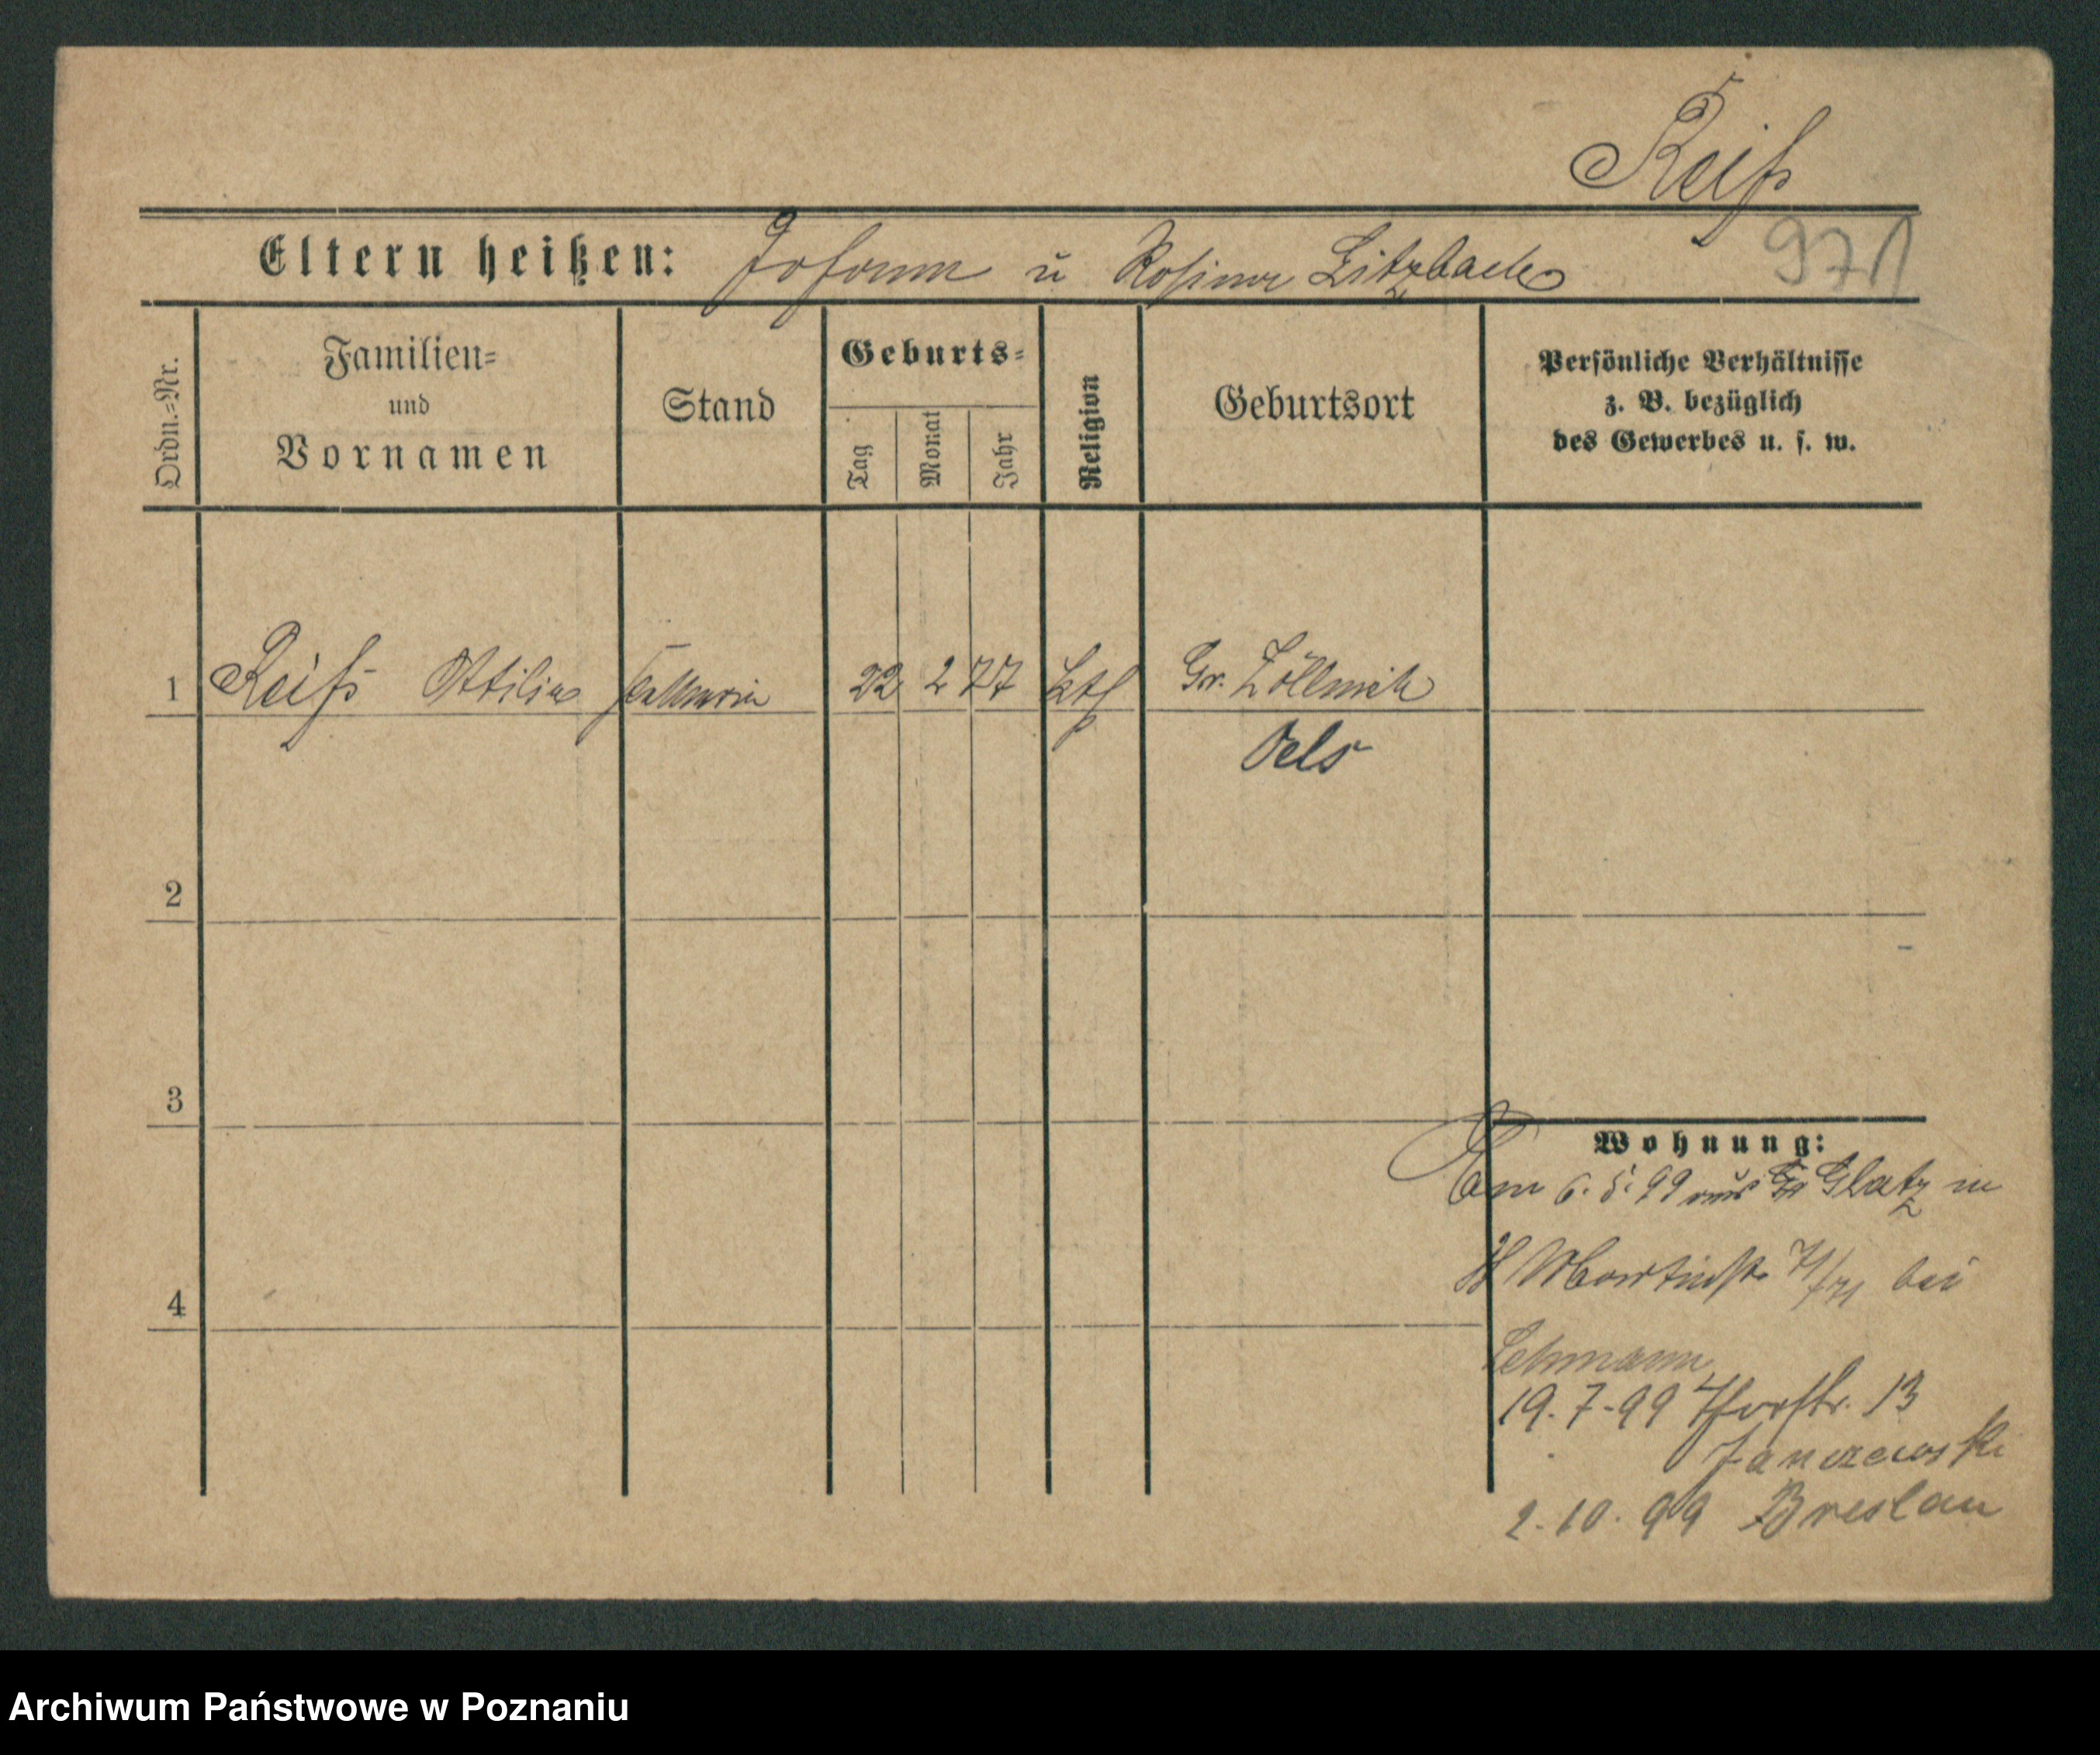 Reiß
Eltern heißen: Johann u Rosina Litzbach
971
Ordn.=Nr.
Familien=
und
Vornamen
Stand
Geburts=
Tag
Monat
Jahr
Religion
Geburtsort
Persönliche Verhältnisse
z. B. bezüglich
des Gewerbes u. s. w.
1 Reiß Ottilie Kellnerin 22 2 77 kth Gr. Zöllnich
Oels
2
3
4
Wohnung:
Am 6. 5. 99 aus Glatz in
St Martinstr bei
Lehmann
19. 7. 99 Thorstr. 13
Janczewski
2. 10. 99 Breslau
Archiwum Państwowe w Poznaniu